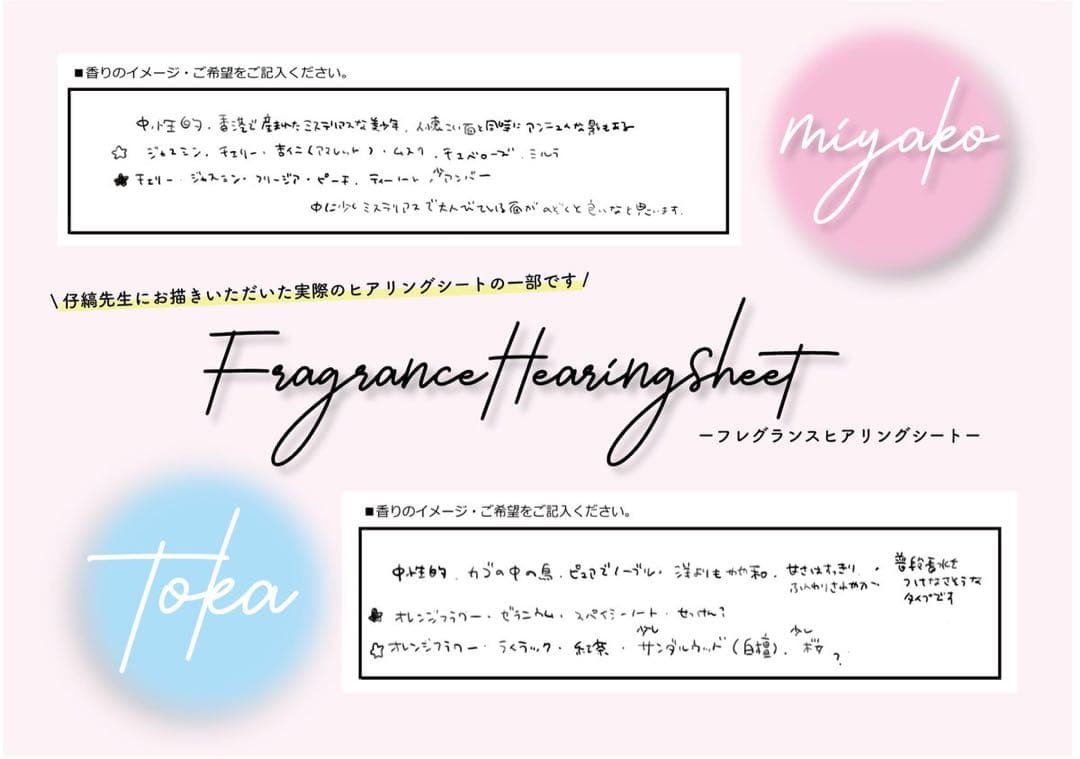 ■香りのイメージ・ご希望をご記入ください。
中性的、香港で産まれたミステリアスな美少年、人懐こい面と同時にアンニュイな影もある
☆ ジャスミン、チェリー、杏仁(アマレット)、ムスク、チュベローズ、ミルラ
★ チェリー・ジャスミン・フリージア・ピーチ、ティーノート アンバー
中に少くミステリアスで大人びている面がのぞくと良いなと思います。
miyako
\ 仔縞先生にお描きいただいた実際のヒアリングシートの一部です /
FragranceHearingsheet
ーフレグランスヒアリングシートー
Toka
■香りのイメージ・ご希望をご記入ください。
中性的、カゴの中の鳥、ピュアでノーブル、洋よりもやや和、甘さはすっきり、
ふんわりさわやか〜
普段香水を
つけなさそうな
タイプです
オレンジフラワー・ゼラニウム・スパイシーノート・せっけん?
少し 少し
☆オレンジフラワー・ライラック・紅茶・サンダルウッド(白檀)、桜?